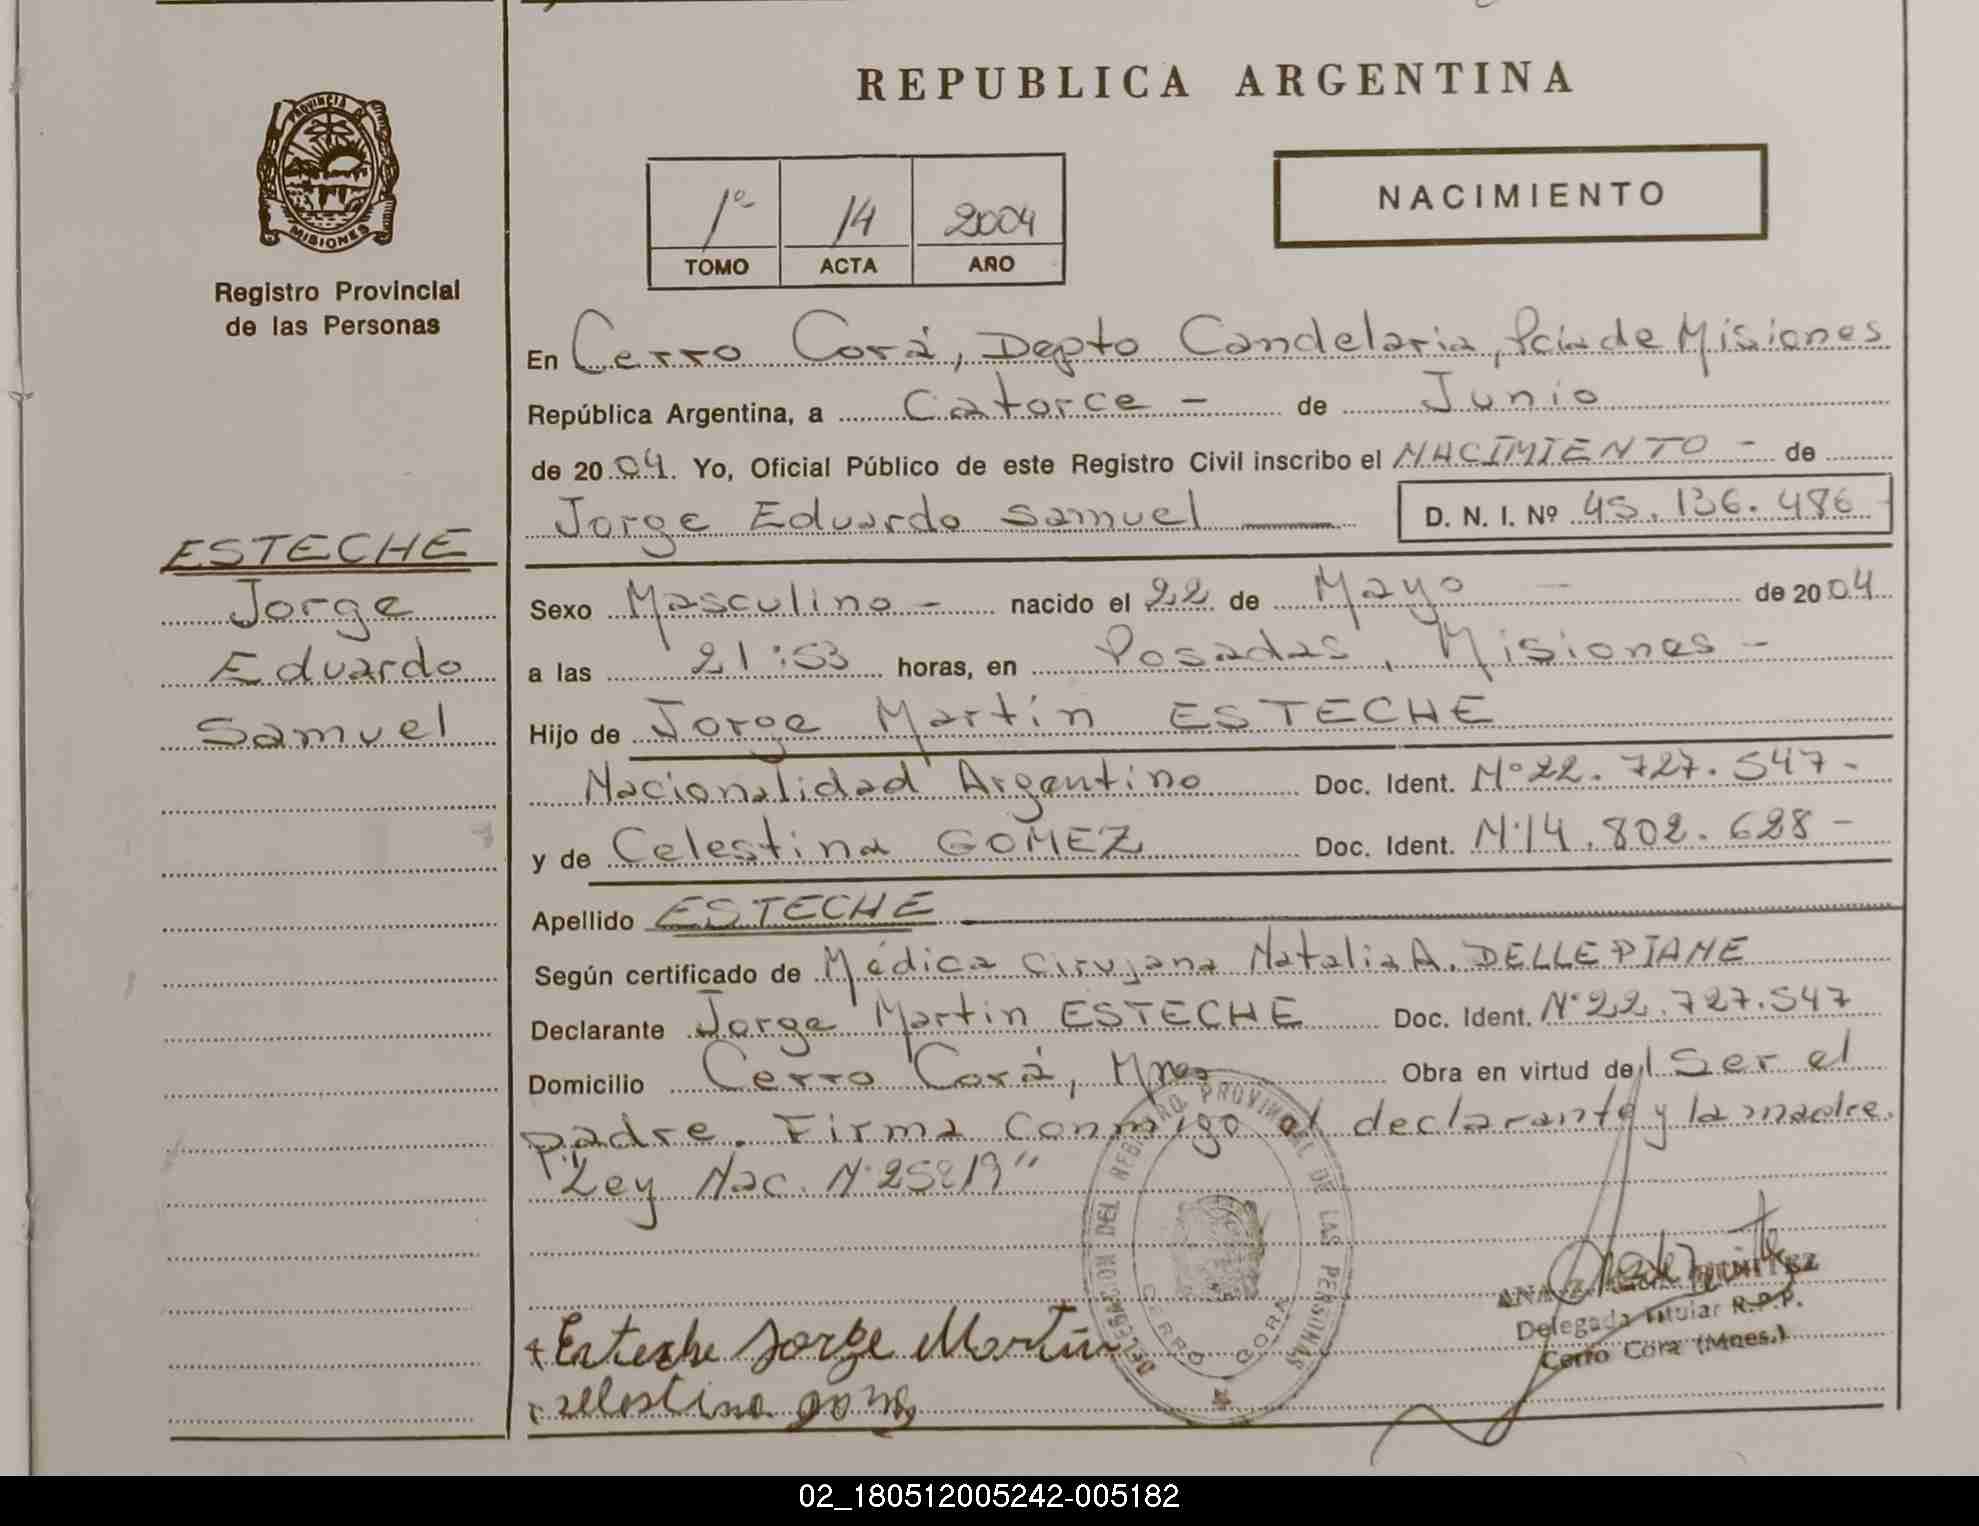 REPUBLICA ARGENTINA
PROVINCIA DE
MISIONES
Registro Provincial
de las Personas
1º 14 2004
TOMO ACTA AÑO
NACIMIENTO
En Cerro Corá, Depto Candelaria, Pcia de Misiones
República Argentina, a Catorce - de Junio
de 2004. Yo, Oficial Público de este Registro Civil inscribo el NACIMIENTO - de
Jorge Eduardo Samuel D. N. I. Nº 45.136.486
ESTECHE
Jorge
Eduardo
Samuel
Sexo Masculino - nacido el 22 de Mayo - de 2004
a las 21:53 horas, en Posadas, Misiones -
Hijo de Jorge Martín ESTECHE
Nacionalidad Argentino Doc. Ident. Nº 22.727.547-
y de Celestina GOMEZ Doc. Ident. Nº 14.802.628-
Apellido ESTECHE
Según certificado de Médica Cirujana Natalia A. DELLEPIANE
Declarante Jorge Martin ESTECHE Doc. Ident. Nº 22.727.547
Domicilio Cerro Corá, Mnes Obra en virtud de Ser el
padre. Firma Conmigo el declarante y la madre.
"Ley Nac. Nº 25819"
DELEGACION DEL REGISTRO PROVINCIAL DE LAS PERSONAS
CERRO CORA
Delegada Titular R.P.P.
Cerro Corá (Mnes.)
Esteche Jorge Martín
02_180512005242-005182